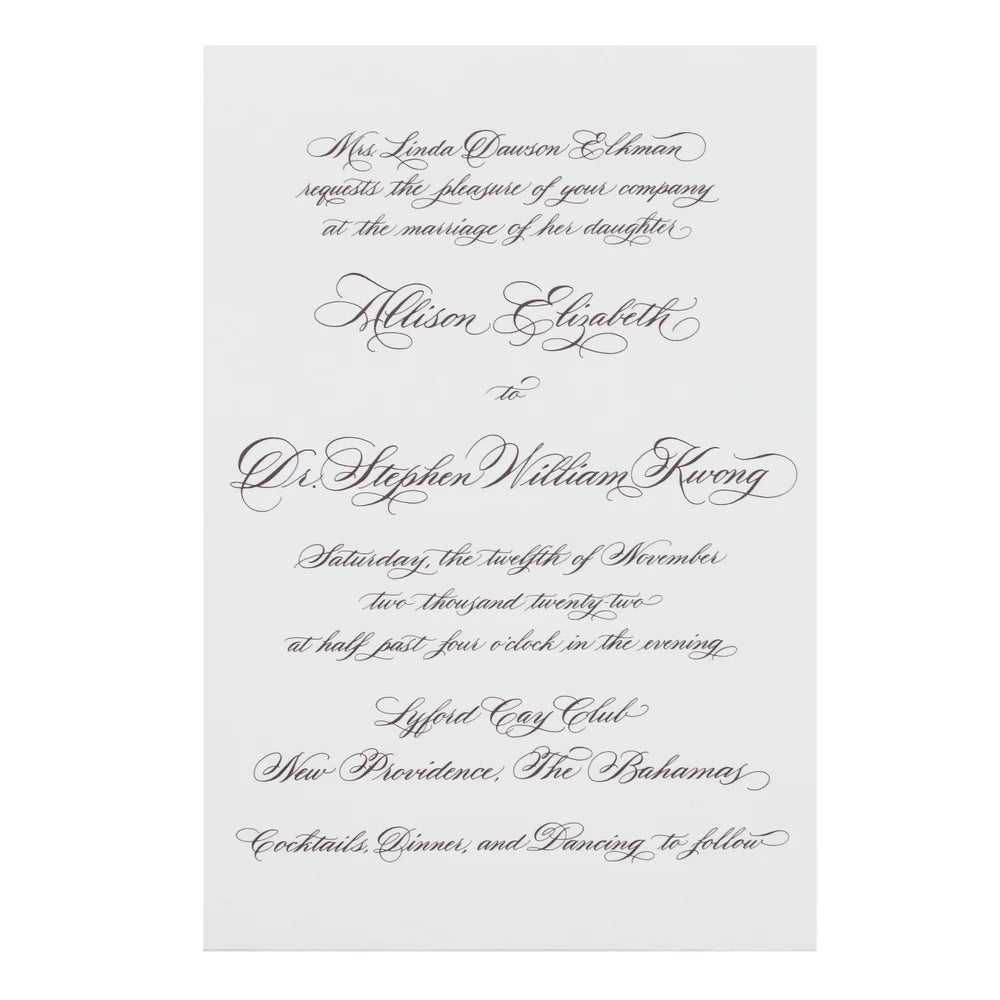 Mrs. Linda Dawson Elkman
requests the pleasure of your company
at the marriage of her daughter
Allison Elizabeth
to
Dr. Stephen William Kwong
Saturday, the twelfth of November
two thousand twenty-two
at half past four o'clock in the evening
Lyford Cay Club
New Providence, The Bahamas
Cocktails, Dinner, and Dancing to follow